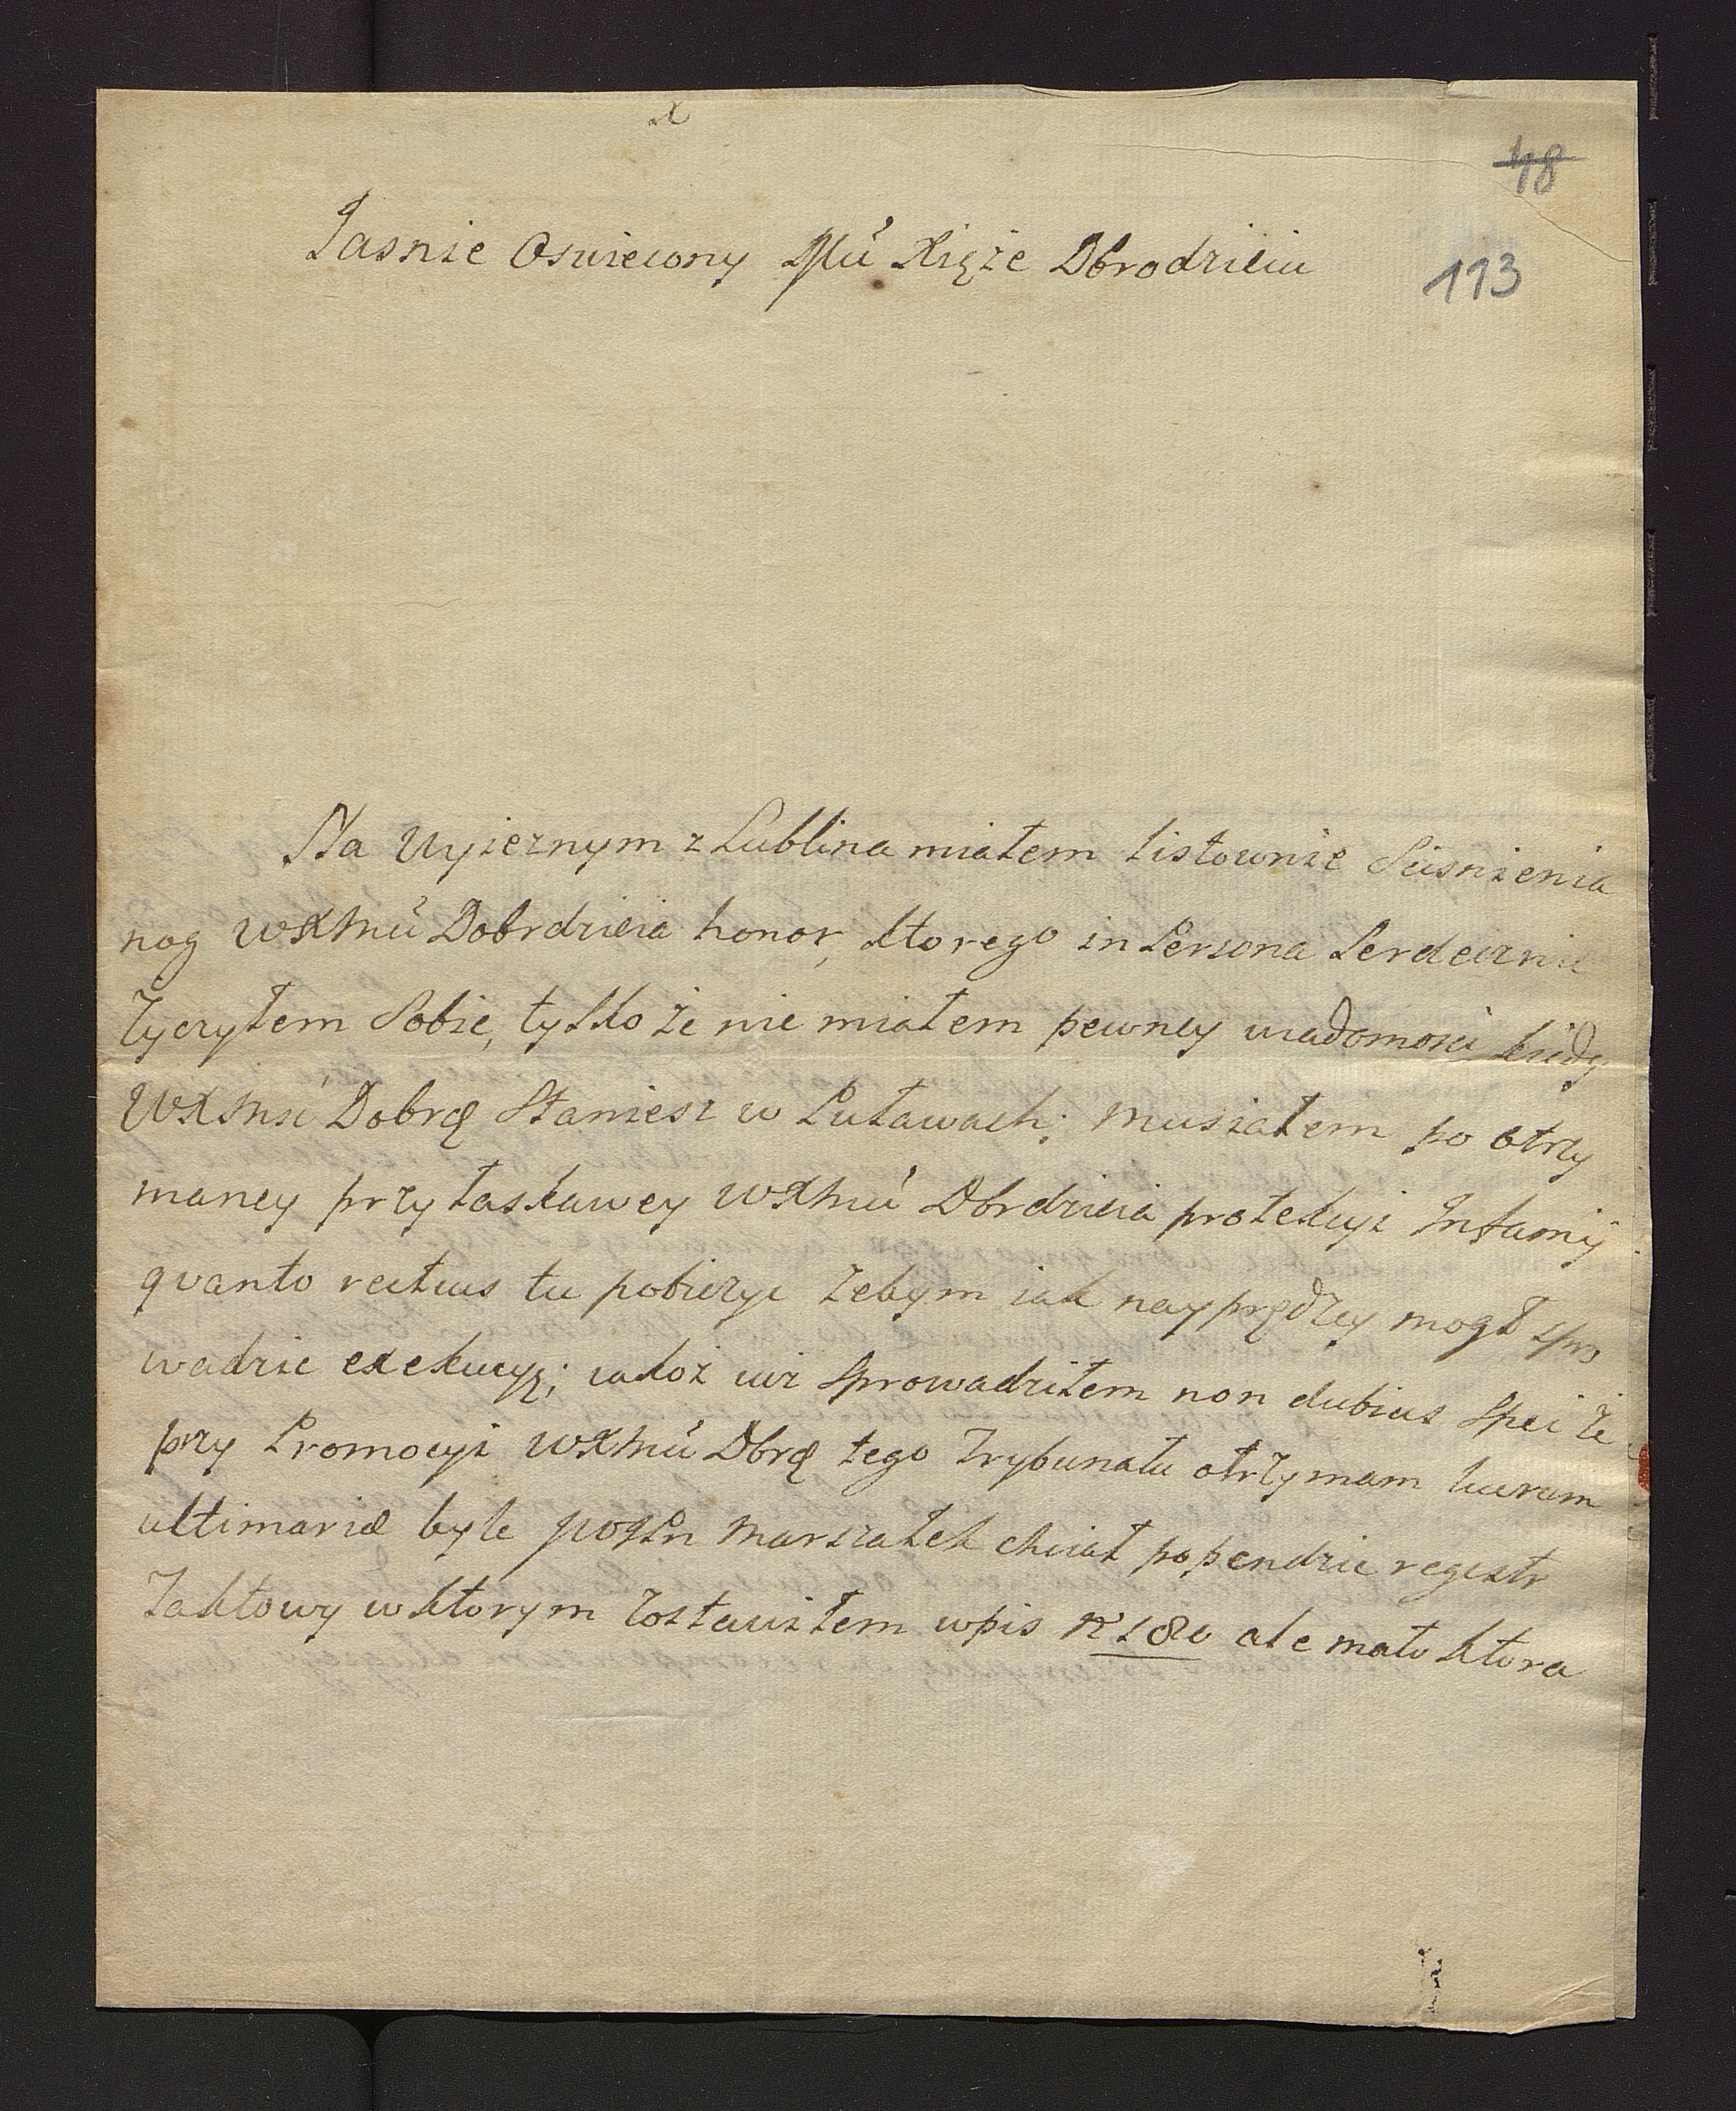 48
113
Jasnie Oswiecony Mći Xiąże Dbrodzieiu
Na Wyieznym z Lublina miałem listownie Scisnienia
nog WXMći Dobrdzieia honor, ktorego in Persona Serdecznie
życzyłem Sobie, tylko że nie miałem pewney wiadomosci kiedy
WXMsć Dobrą Staniesz w Puławach; musiałem po otrzy
maney przy łaskawey WXMći Dbrdzieia protekcyi Infamij
qvanto rectius tu pobieżyc żebym iak nayprędzey mogł spro
wadzic exekucyą; iakoż iuż Sprowadziłem non dubius Spei że
przy Promocyi WXMći Dbrą tego Trybunału otrzymam lucrum
ultimariæ byle Marszałek chciał popendzic regestr
Taktowy w ktorym zostawiłem wpis N 180 ale mało ktora